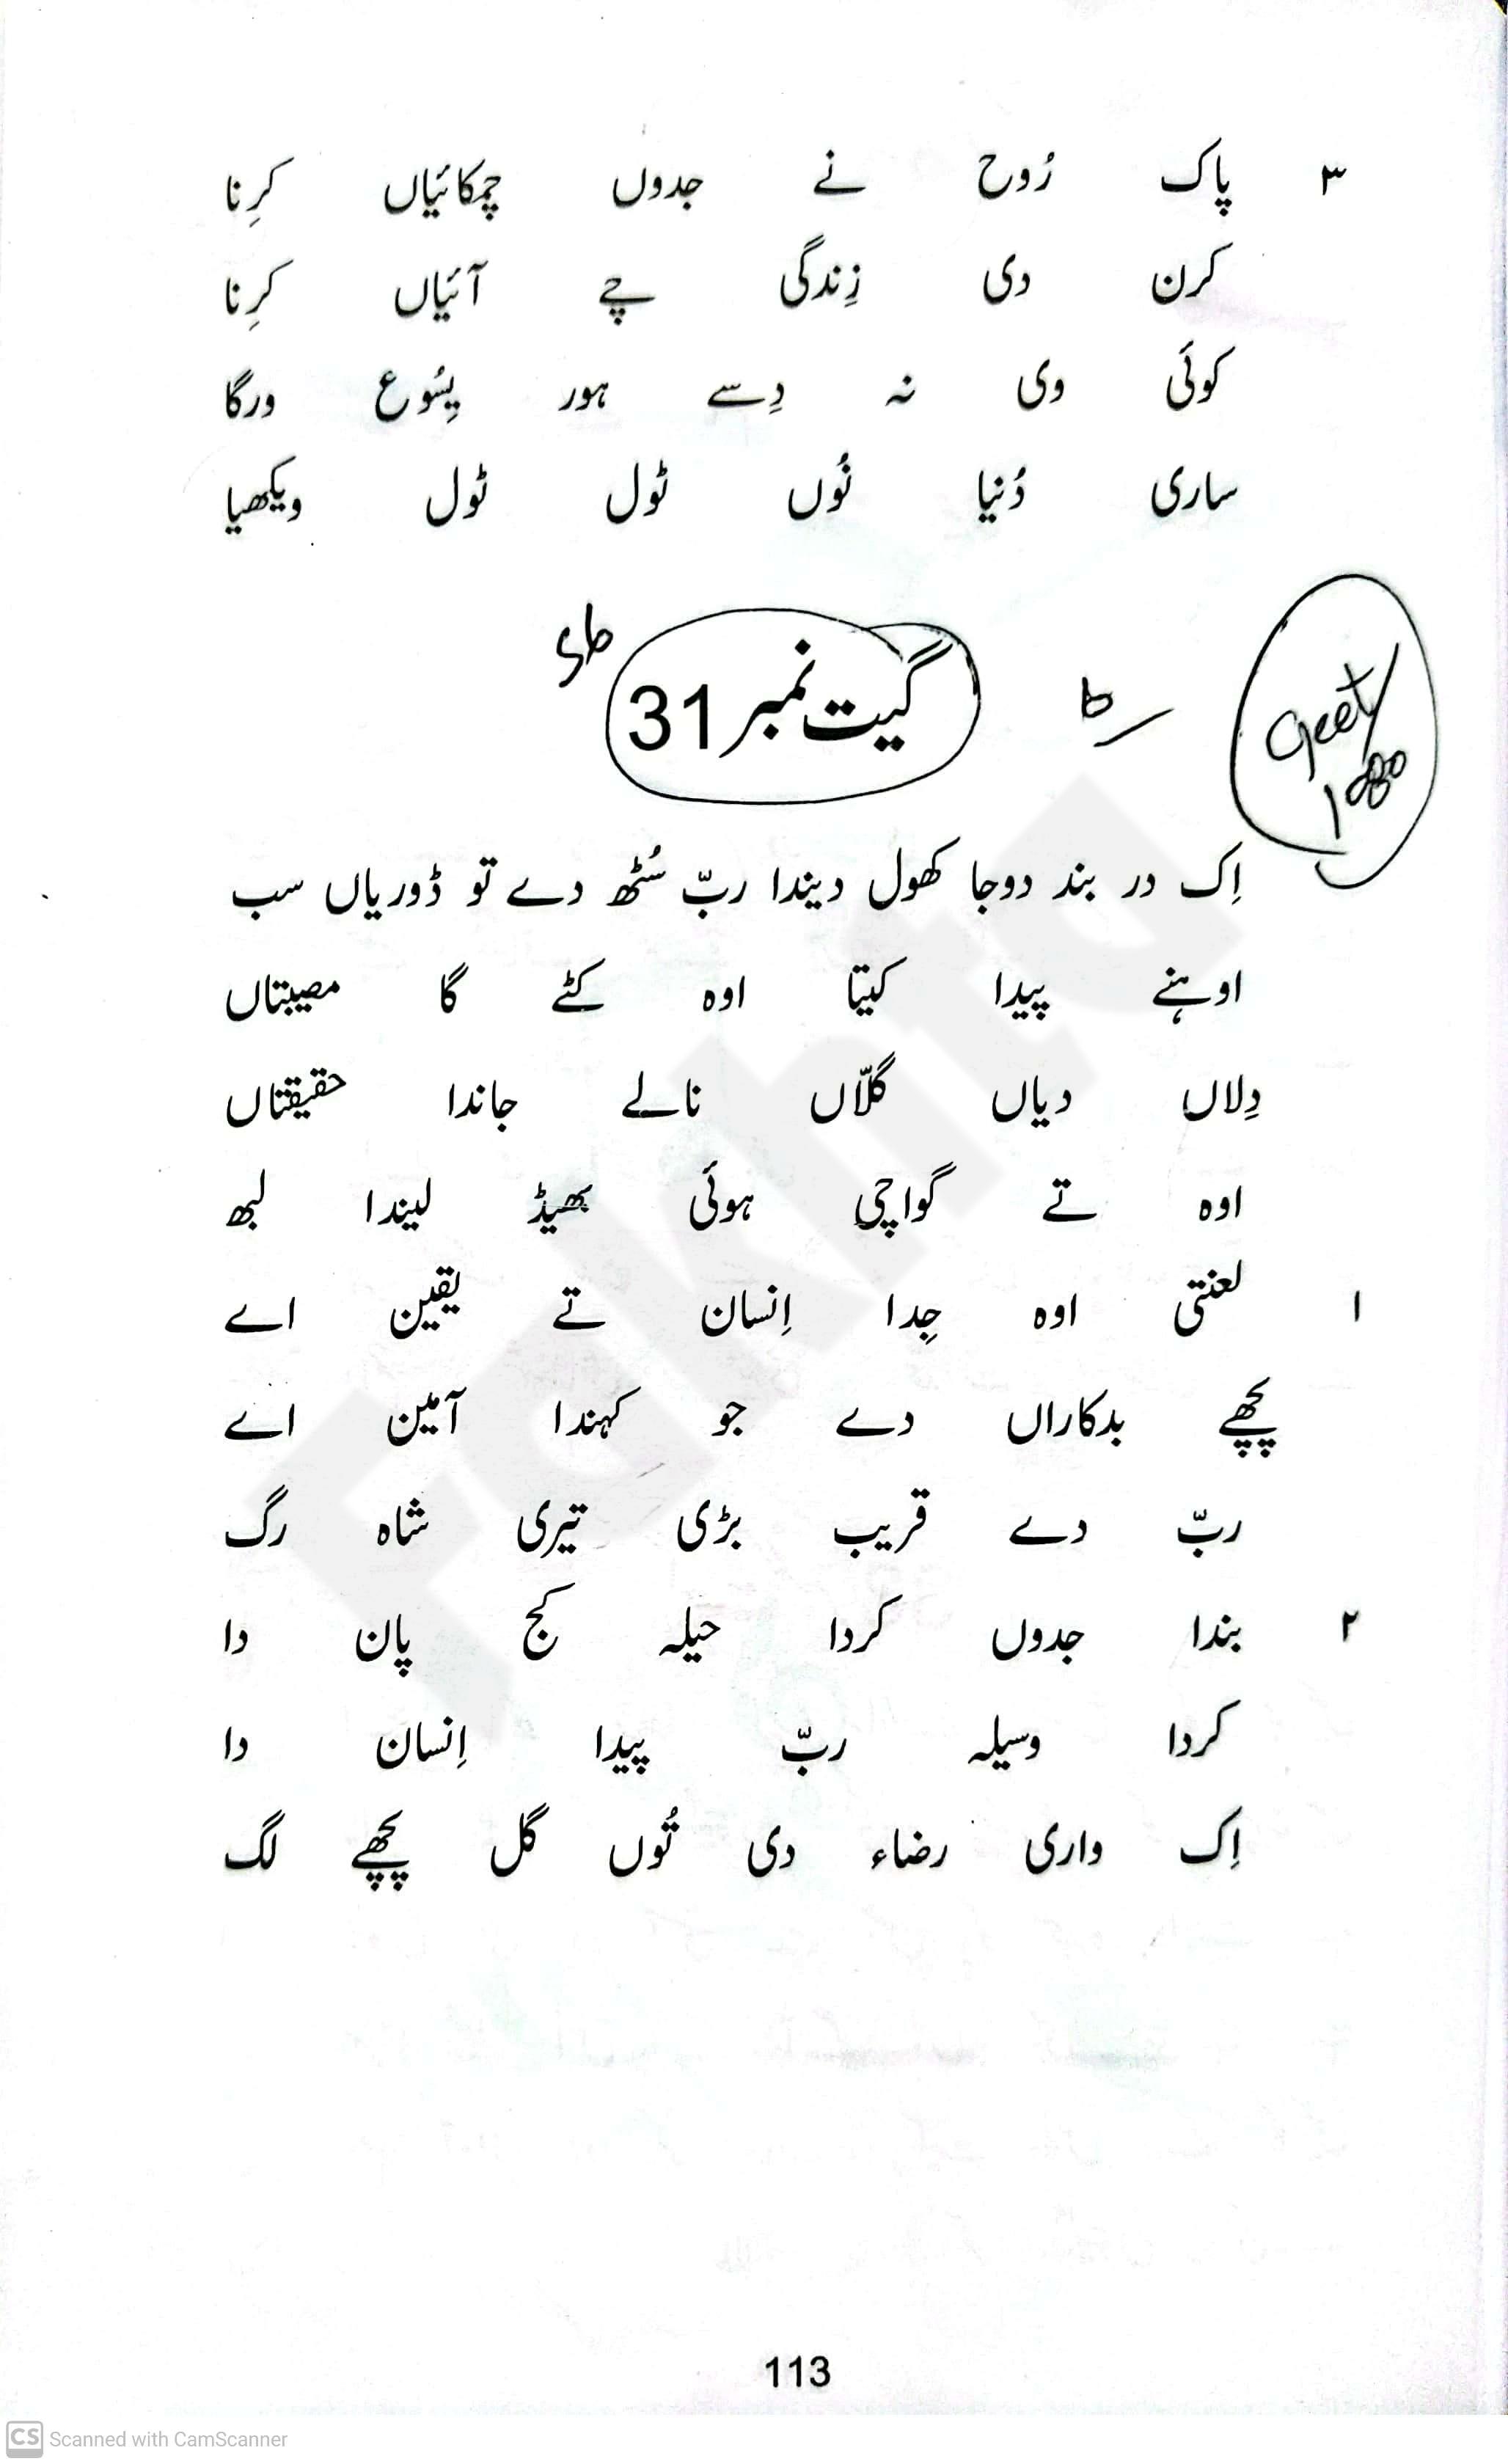 ۳ پاک رُوح نے جدوں چمکائیاں کرِنا
کرن دی زِندگی چے آئیاں کرِنا
کوئی وی نہ دِسے ہور یِسُوع ورگا
ساری دُنیا نُوں ٹول ٹول ویکھیا
گیت نمبر 31
Geet/
اِک در بند دوجا کھول دیندا ربّ سُٹھ دے تو ڈوریاں سب
اوہنے پیدا کیتا اوہ کٹے گا مصیبتاں
دِلاں دیاں گلّاں نالے جاندا حقیقتاں
اوہ تے گواچی ہوئی بھیڈ لیندا لبھ
۱ لعنتی اوہ جِدا اِنسان تے یقین اے
پچھے بدکاراں دے جو کہندا آمین اے
ربّ دے قریب بڑی تیری شاہ رگ
۲ بندا جدوں کردا حیلہ کج پان دا
کردا وسیلہ ربّ پیدا اِنسان دا
اِک واری رضاء دی تُوں گل پچھے لگ
113
Fakhta
CS Scanned with CamScanner